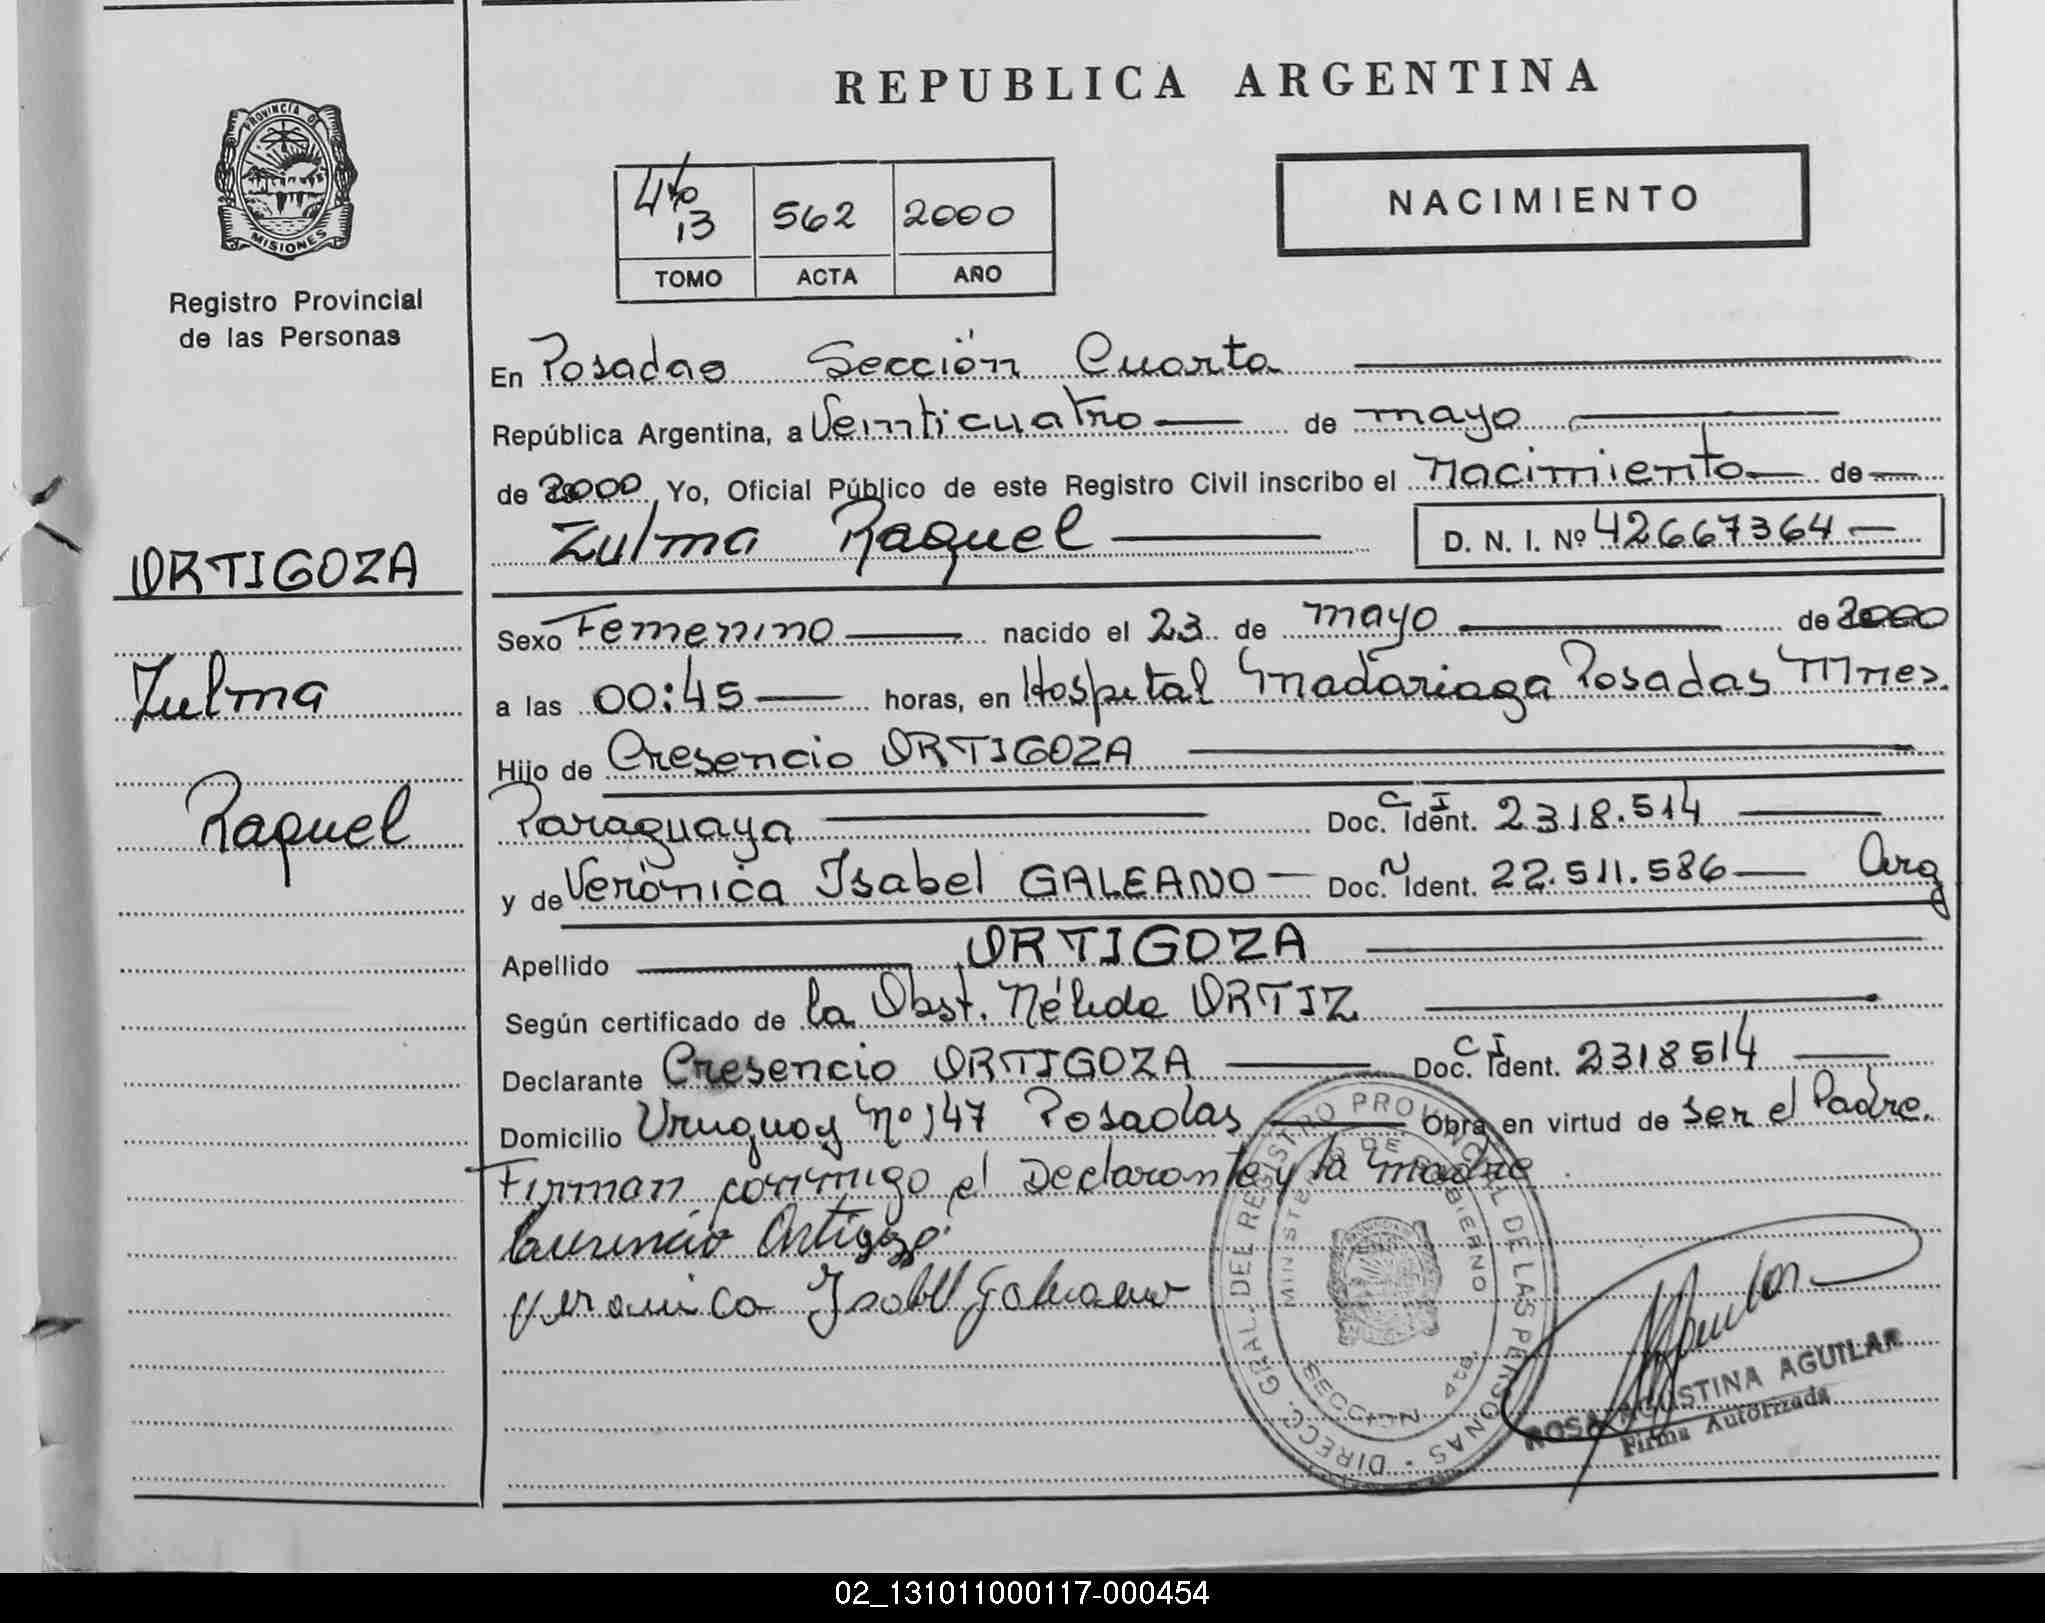 REPUBLICA ARGENTINA
PROVINCIA DE MISIONES
Registro Provincial
de las Personas
4to 13 562 2000
TOMO ACTA AÑO
NACIMIENTO
En Posadas Sección Cuarta
República Argentina, a Veinticuatro de mayo
de 2000 Yo, Oficial Público de este Registro Civil inscribo el Nacimiento de
Zulma Raquel D. N. I. Nº 42667364
ORTIGOZA
Zulma
Raquel
Sexo Femenino nacido el 23 de mayo de 2000
a las 00:45 horas, en Hospital Madariaga Posadas Mnes.
Hijo de Cresencio ORTIGOZA
Paraguaya Doc. Ident. C I 2318.514
y de Verónica Isabel GALEANO Doc. N Ident. 22.511.586 Arg
Apellido ORTIGOZA
Según certificado de la Obst. Nélida ORTIZ
Declarante Cresencio ORTIGOZA Doc. Ident. C I 2318514
Domicilio Uruguay Nº 147 Posadas Obra en virtud de ser el Padre.
Firman conmigo el Declarante y la madre
Ortigoza
Veronica Isabel Galeano
DIRECC. GRAL. DEL REGISTRO PROVINCIAL DE LAS PERSONAS
MINISTERIO DE GOBIERNO
SECCION 4ta.
ROSA AGUSTINA AGUILAR
Firma Autorizada
02_131011000117-000454